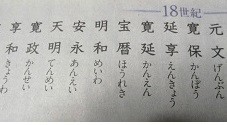 18世紀
元文 げんぶん
寛保 かんぽう
延享 えんきょう
寛延 かんえん
宝暦 ほうれき
明和 めいわ
安永 あんえい
天明 てんめい
寛政 かんせい
享和 きょうわ